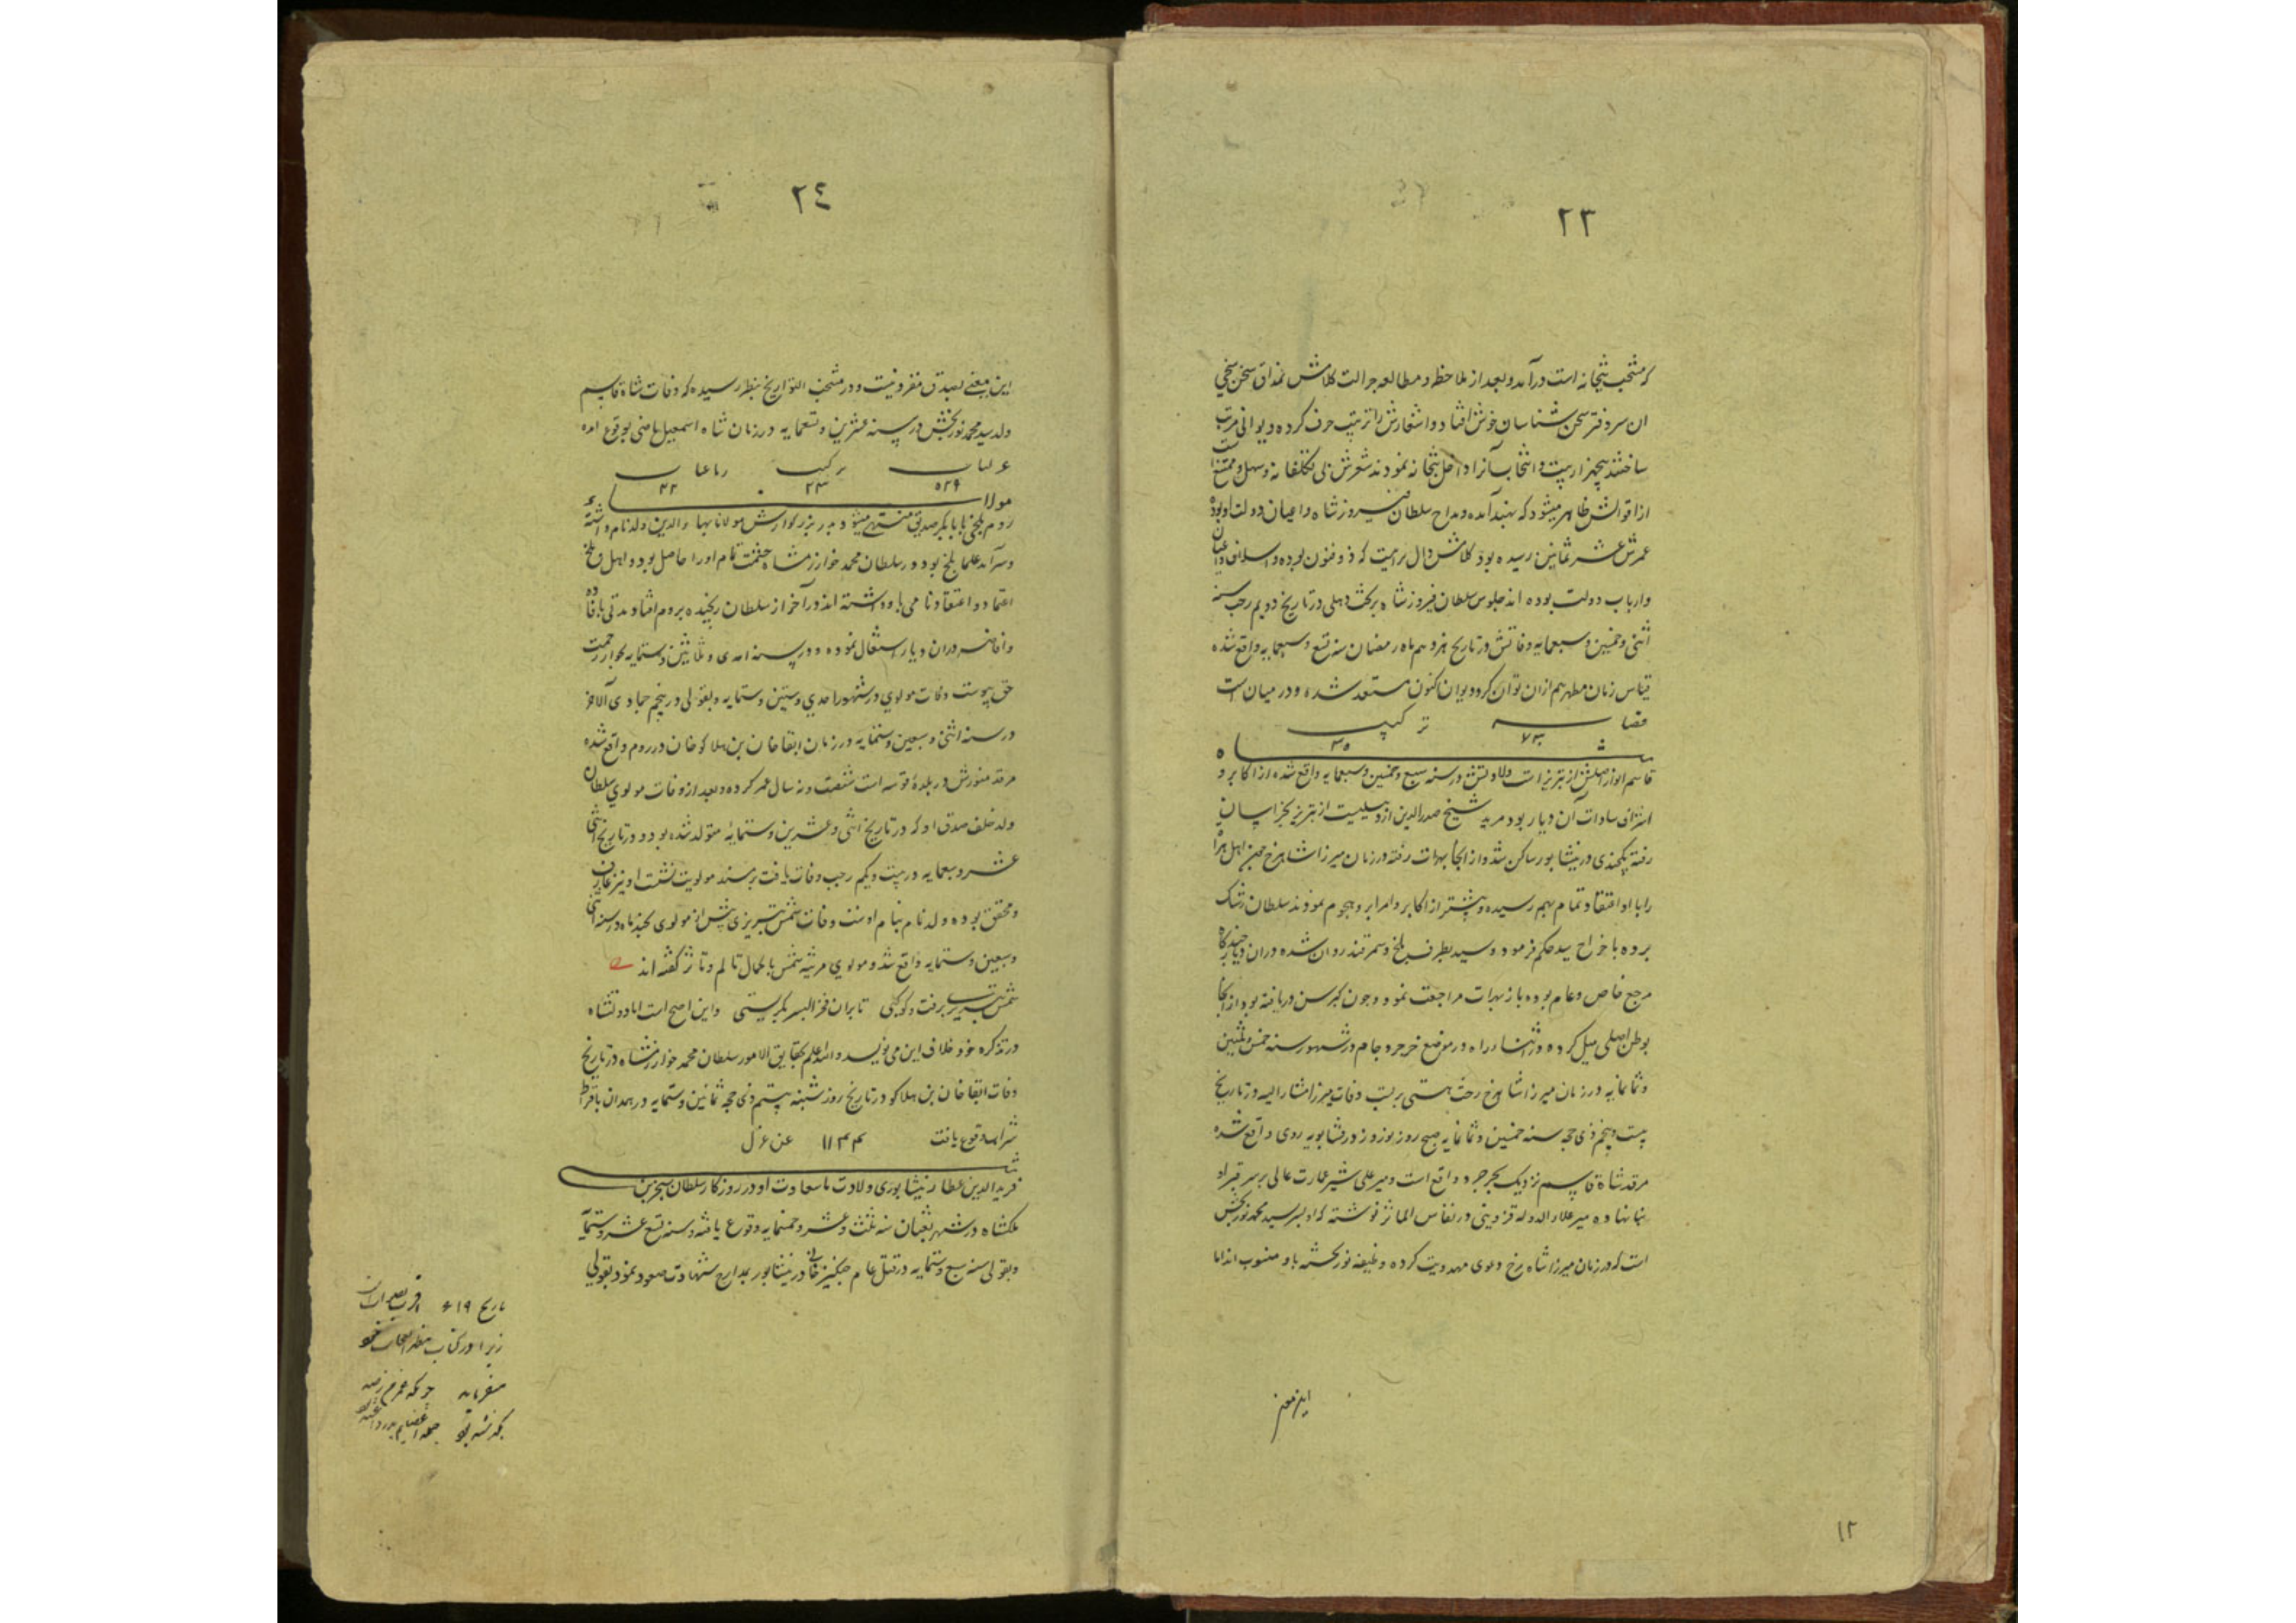 ٢٣
که منتخب بتخانه است درآمد و بعد از ملاحظه و مطالعه جزالت کلامش بمذاق سخن سنجی
ان سر دفتر سخن شناسان خوش افتاد و اشعارش را ترتیب حرف کرده دیوانی مرتب
ساختند پنجهزار بیت و انتخاب آنرا داخل بتخانه نمودند شعرش بی تکلفانه و سهل و ممتنع است
از اقوالش ظاهر میشود که بهند آمده و مداح سلطان فیروز شاه و اعیان دولت او بوده
عمرش عشر ثمانین رسیده بود کلامش دال براینست که ذو فنون بوده و اسلاف و اعیان
و ارباب دولت بوده اند جلوس سلطان فیروز شاه بر تخت دهلی در تاریخ دویم رجب سنه
اثنی و خمسین و سبعمایه وفاتش در تاریخ هژدهم ماه رمضان سنه تسع و سبعمایه واقع شده
قیاس زمان مطهر هم ازان توان کرد و دیوان اکنون مستعد شده و در میان است
قصاید ترکیب
٧٣ ٣٥
شاه
قاسم انوار اصلش از تبریز است ولادتش در سنه سبع و خمسین و سبعمایه واقع شده از اکابر و
اشراف سادات آن دیار بود مرید شیخ صدرالدین اردبیلیست از تبریز بخراسان
رفته یکچندی در نیشابور ساکن شد و از آنجا بهرات رفته در زمان میرزا شاهرخ جمیع اهل هراة
را با او اعتقاد تمام بهم رسیده و بیشتر از اکابر و امرا برو هجوم نمودند سلطان رشک
برده با خراج سید حکم فرمود و سید بطرف بلخ و سمرقند روان شده دران دیار چندگاه
مرجع خاص و عام بوده باز بهرات مراجعت نمود و چون کبر سن دریافته بود از آنجا
بوطن اصلی میل کرده در اثناء راه در موضع خرجرد جام در شهور سنه خمس و ثلثین
و ثمانمایه در زمان میرزا شاهرخ رخت هستی بربست وفات میرزا مشارالیه در تاریخ
بیست و پنجم ذی حجه سنه خمسین و ثمانمایه صبح روز نوروز در فشابویه ری واقع شده
مرقد شاه قاسم نزدیک بخرجرد واقع است و میر علی شیر عمارت عالی بر سر قبر او
بنا نهاده میر علاء الدوله قزوینی در نفایس المآثر نوشته که او پسر سید محمد نوربخش
است که در زمان میرزا شاه رخ دعوی مهدویت کرده و طیفه نوربخشیه باو منسوب اند اما
این معنی
١٢
٢٤
این معنی بصدق مقرونیست و در منتخب التواریخ بنظر رسیده که وفات شاه قاسم
ولد سید محمد نوربخش در سنه عشرین و تسعمایه در زمان شاه اسمعیل ماضی بوقوع امده
غزلیات ترکیب رباعیات
٥٢٩ ٢٣ ٣٢
مولانای
روم بلخی بابابکر صدیق منتهی میشود پدر بزرگوارش مولانا بهاء الدین ولد نام داشته
و سرآمد علماء بلخ بود و در سلطان محمد خوارزمشاه حشمت تمام اورا حاصل بود و اهل بلخ
اعتماد و اعتقاد نامی باو داشته اند در آخر از سلطان رنجیده بروم افتاد و مدتی بافاده
و افاضه دران دیار اشتغال نموده و در سنه احدی و ثلاثین و ستمایه بجوار رحمت
حق پیوست وفات مولوی در شهور احدی و ستین و ستمایه و بقولی در پنجم جمادی الاخر
در سنه اثنی و سبعین و ستمایه در زمان ابقا خان بن هلاکو خان در روم واقع شده
مرقد منورش در بلدۀ قونیه است شصت و نه سال عمر کرده و بعد از وفات مولوی سلطان
ولد خلف صدق او که در تاریخ اثنی و عشرین و ستمایه متولد شده بود و در تاریخ اثنی
عشر و سبعمایه در بیست و یکم رجب وفات یافت بر مسند مولویت نشست او نیز عارف
و محقق بوده و ولد نام بنام اوست وفات شمس تبریزی پیش از مولوی بچند ماه در سنه اثنی
و سبعین و ستمایه واقع شد و مولوی مرثیه شمس با کمال تالم و تاثر گفته اند
شمس تبریز برفت و کو کسی تا بران فخر البشر بگریستی و این اصح است اما دولتشاه
در تذکره خود خلاف این می نویسد والله اعلم بحقایق الامور سلطان محمد خوارزمشاه در تاریخ
وفات ابقا خان بن هلاکو در تاریخ روز شنبه بیستم ذی حجه ثمانین و ستمایه در همدان بافراط
شراب وقوع یافت ١١٣٣ عن غزل
شیخ
فرید الدین عطار نیشابوری ولادت با سعادت او در روزگار سلطان سنجر بن
ملکشاه در شهر شعبان سنه ثلث و عشر و خمسمایه وقوع یافته و سنه تسع عشر و ستمایه
و بقولی سنه سبع و ستمایه در قتل عام چنگیز خانی در نیشابور بمدارج شهادت صعود نمود بقولی
تاریخ ٦١٩
زیرا در کتاب مظهر العجایب خود
میفرماید